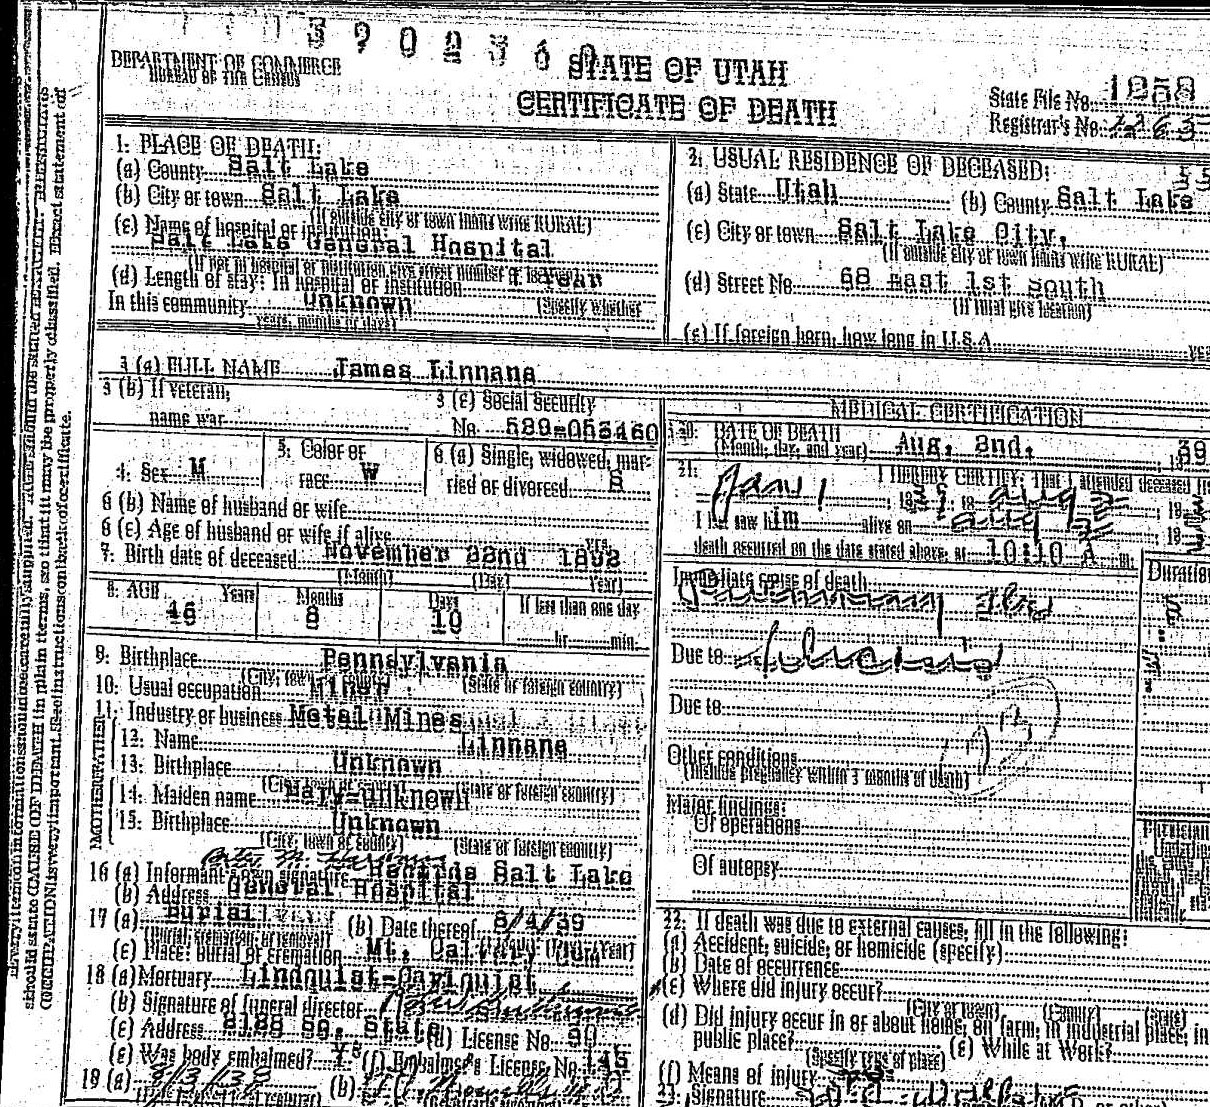 DEPARTMENT OF COMMERCE
BUREAU OF THE CENSUS
STATE OF UTAH
CERTIFICATE OF DEATH
State File No. 1258
Registrar's No.
1. PLACE OF DEATH:
(a) County Salt Lake
(b) City or town Salt Lake
(If outside city or town limits write RURAL)
(c) Name of hospital or institution:
Salt Lake General Hospital
(If not in hospital or institution give street number
(d) Length of stay: In hospital or institution year
In this community Unknown (Specify whether
years, months or days)
2. USUAL RESIDENCE OF DECEASED:
(a) State Utah (b) County Salt Lake
(c) City or town Salt Lake City,
(If outside city or town limits write RURAL)
(d) Street No. 68 East 1st South
(If rural give location)
(e) If foreign born, how long in U.S.A.
3 (a) FULL NAME James Linnane
3 (b) If veteran,
name war
3 (c) Social Security
No. 529-053460
4. Sex M
5. Color or
race W
6 (a) Single, widowed, mar-
ried or divorced S
6 (b) Name of husband or wife
6 (c) Age of husband or wife if alive yrs.
7. Birth date of deceased November 22nd 1892
(Month) (Day) Year)
8. AGE Years Months Days If less than one day
46 8 10 hr. min.
9. Birthplace Pennsylvania
(City, town or county) (State or foreign country)
10. Usual occupation Miner
11. Industry or business Metal Mines
FATHER
12. Name Linnane
13. Birthplace Unknown
(City, town or county) (State or foreign country)
MOTHER
14. Maiden name Mary-unknown
15. Birthplace Unknown
(City, town or county) (State or foreign country)
16 (a) Informant's own signature Records Salt Lake
(b) Address General Hospital
17 (a) Burial (b) Date thereof 8/4/39
(Burial, cremation, or removal) (Month) (Day) (Year)
(c) Place: burial or cremation Mt. Calvary
18 (a) Mortuary Lindquist-Carlquist
(b) Signature of funeral director
(c) Address So. State (d) License No. 90
(e) Was body embalmed? Yes (f) Embalmer's License No. 145
19 (a) (b)
MEDICAL CERTIFICATION
20. DATE OF DEATH
(Month, day, and year) Aug. 2nd, 1939
21. I HEREBY CERTIFY, That I attended deceased
Jan 1 Aug 2
I last saw him alive on Aug 2
death occurred on the date stated above, at 10:10 A m.
Immediate cause of death Duration
Pulmonary
Due to
Due to
Other conditions
(Include pregnancy within 3 months of death)
Major findings:
Of operations
Of autopsy
Physician
Underline
22. If death was due to external causes, fill in the following:
(a) Accident, suicide, or homicide (specify)
(b) Date of occurrence
(c) Where did injury occur?
(City or town) (County) (State)
(d) Did injury occur in or about home, on farm, in industrial place, in
public place? (e) While at Work?
(Specify type of place)
(f) Means of injury
23. Signature